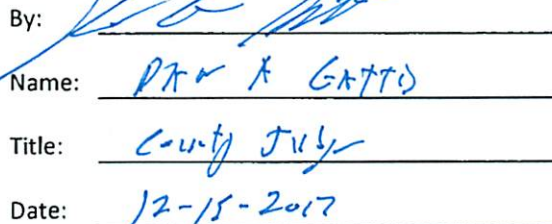 By:
Name: DAN A GATTIS
Title: County Judge
Date: 12-15-2017